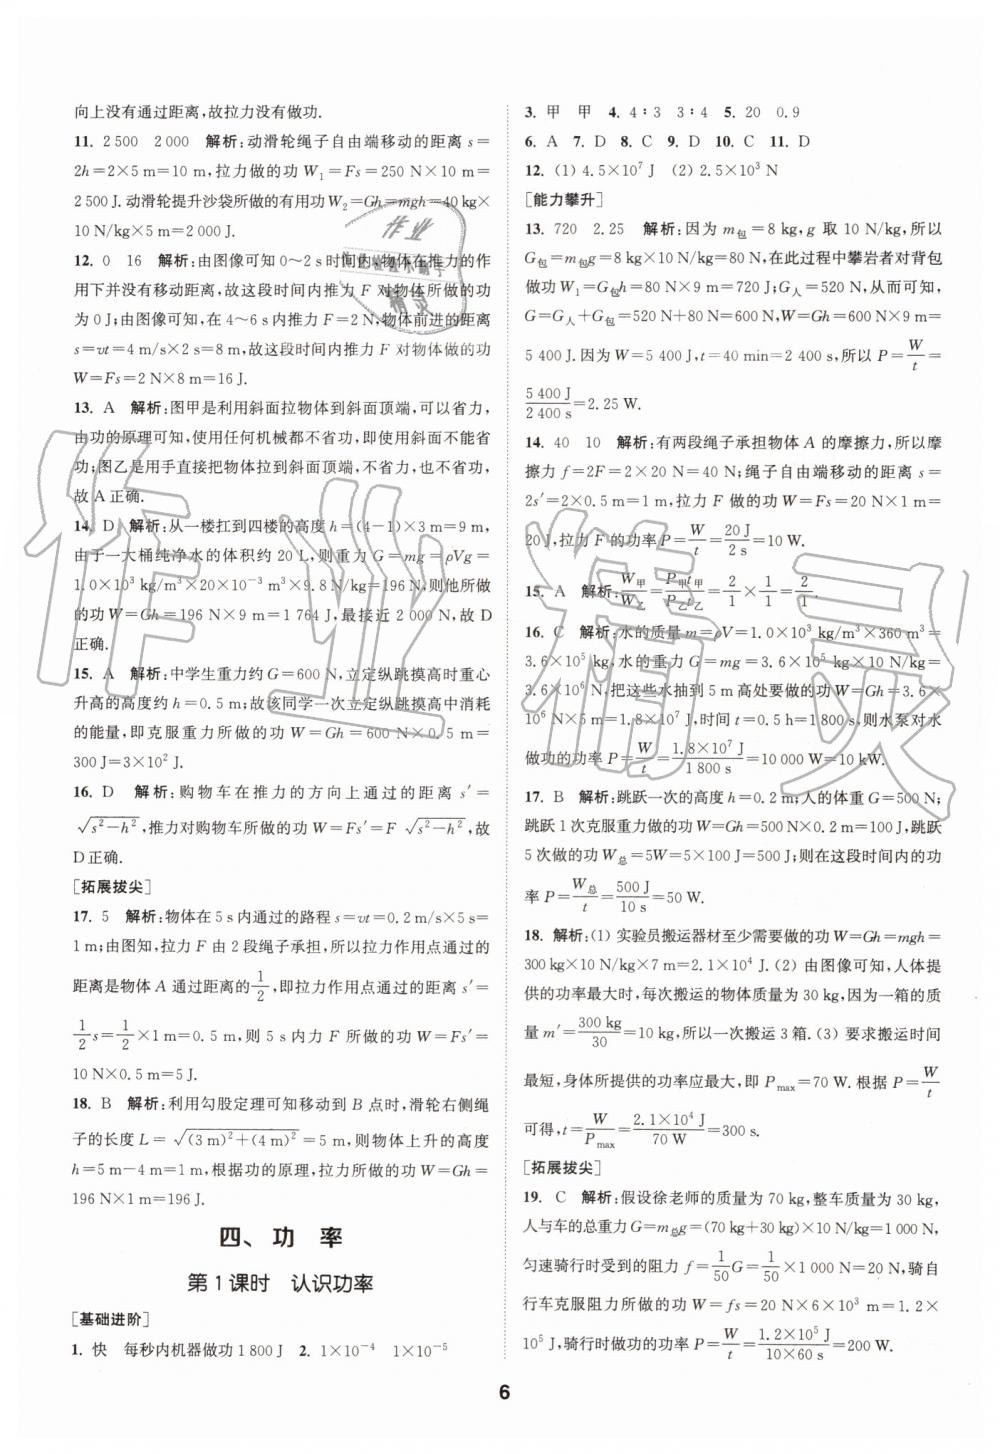 向上没有通过距离,故拉力没有做功.
11. 2 500　2 000　解析:动滑轮绳子自由端移动的距离 s=
2h=2×5 m=10 m,拉力做的功 W₁=Fs=250 N×10 m=
2 500 J.动滑轮提升沙袋所做的有用功 W₂=Gh=mgh=40 kg×
10 N/kg×5 m=2 000 J.
12. 0　16　解析:由图像可知 0～2 s 时间内,物体在推力的作
用下并没有移动距离,故这段时间内推力 F 对物体所做的功
为 0 J;由图像可知,在 4～6 s 内推力 F=2 N,物体前进的距离
s=vt=4 m/s×2 s=8 m,故这段时间内推力 F 对物体做的功
W=Fs=2 N×8 m=16 J.
13. A　解析:图甲是利用斜面拉物体到斜面顶端,可以省力,
由功的原理可知,使用任何机械都不省功,即使用斜面不省
功;图乙是用手直接把物体拉到斜面顶端,不省力,也不省功,
故 A 正确.
14. D　解析:从一楼扛到四楼的高度 h=(4-1)×3 m=9 m,
由于一大桶纯净水的体积约 20 L,则重力 G=mg=ρVg=
1.0×10³ kg/m³×20×10⁻³ m³×9.8 N/kg=196 N,则他所做
的功 W=Gh=196 N×9 m=1 764 J,最接近 2 000 N,故 D
正确.
15. A　解析:中学生重力约 G=600 N,立定纵跳摸高时重心
升高的高度约 h=0.5 m;故该同学一次立定纵跳摸高中消耗
的能量,即克服重力所做的功 W=Gh=600 N×0.5 m=
300 J=3×10² J.
16. D　解析:购物车在推力的方向上通过的距离 s′=
√(s²-h²),推力对购物车所做的功 W=Fs′=F √(s²-h²),故
D 正确.
[拓展拔尖]
17. 5　解析:物体在 5 s 内通过的路程 s=vt=0.2 m/s×5 s=
1 m;由图知,拉力 F 由 2 段绳子承担,所以拉力作用点通过的
距离是物体 A 通过距离的 1/2,即拉力作用点通过的距离 s′=
1/2 s=1/2×1 m=0.5 m,则 5 s 内力 F 所做的功 W=Fs′=
10 N×0.5 m=5 J.
18. B　解析:利用勾股定理可知移动到 B 点时,滑轮右侧绳
子的长度 L=√((3 m)²+(4 m)²)=5 m,则物体上升的高度
h=5 m-4 m=1 m,根据功的原理,拉力所做的功 W=Gh=
196 N×1 m=196 J.
四、功　率
第 1 课时　认识功率
[基础进阶]
1. 快　每秒内机器做功 1 800 J　2. 1×10⁻⁴　1×10⁻⁵
3. 甲　甲　4. 4∶3　3∶4　5. 20　0.9
6. A　7. D　8. C　9. D　10. C　11. D
12. (1) 4.5×10⁷ J　(2) 2.5×10³ N
[能力攀升]
13. 720　2.25　解析:因为 m包=8 kg,g 取 10 N/kg,所以
G包=m包g=8 kg×10 N/kg=80 N,在此过程中攀岩者对背包
做功 W₁=G包h=80 N×9 m=720 J;G人=520 N,从而可知,
G=G人+G包=520 N+80 N=600 N,W=Gh=600 N×9 m=
5 400 J.因为 W=5 400 J,t=40 min=2 400 s,所以 P=W/t=
5 400 J/2 400 s=2.25 W.
14. 40　10　解析:有两段绳子承担物体 A 的摩擦力,所以摩
擦力 f=2F=2×20 N=40 N;绳子自由端移动的距离 s=
2s′=2×0.5 m=1 m,拉力 F 做的功 W=Fs=20 N×1 m=
20 J,拉力 F 的功率 P=W/t=20 J/2 s=10 W.
15. A　解析:W甲/W乙=P甲t甲/P乙t乙=2/1×1/1=2/1.
16. C　解析:水的质量 m=ρV=1.0×10³ kg/m³×360 m³=
3.6×10⁵ kg,水的重力 G=mg=3.6×10⁵ kg×10 N/kg=
3.6×10⁶ N,把这些水抽到 5 m 高处要做的功 W=Gh=3.6×
10⁶ N×5 m=1.8×10⁷ J,时间 t=0.5 h=1 800 s,则水泵对水
做功的功率 P=W/t=1.8×10⁷ J/1 800 s=10 000 W=10 kW.
17. B　解析:跳跃一次的高度 h=0.2 m;人的体重 G=500 N,
跳跃 1 次克服重力做功 W=Gh=500 N×0.2 m=100 J,跳跃
5 次做的功 W总=5W=5×100 J=500 J;则在这段时间内的功
率 P=W总/t=500 J/10 s=50 W.
18. 解析:(1) 实验员搬运器材至少需要做的功 W=Gh=mgh=
300 kg×10 N/kg×7 m=2.1×10⁴ J.(2) 由图像可知,人体提
供的功率最大时,每次搬运的物体质量为 30 kg,因为一箱的质
量 m′=300 kg/30=10 kg,所以一次搬运 3 箱.(3) 要求搬运时间
最短,身体所提供的功率应最大,即 Pmax=70 W.根据 P=W/t
可得,t=W/Pmax=2.1×10⁴ J/70 W=300 s.
[拓展拔尖]
19. C　解析:假设徐老师的质量为 70 kg,整车质量为 30 kg,
人与车的总重力 G=m总g=(70 kg+30 kg)×10 N/kg=1 000 N,
匀速骑行时受到的阻力 f=1/50 G=1/50×1 000 N=20 N,骑自
行车克服阻力所做的功 W=fs=20 N×6×10³ m=1.2×
10⁵ J,骑行时做功的功率 P=W/t=1.2×10⁵ J/10×60 s=200 W.
6
作业精灵